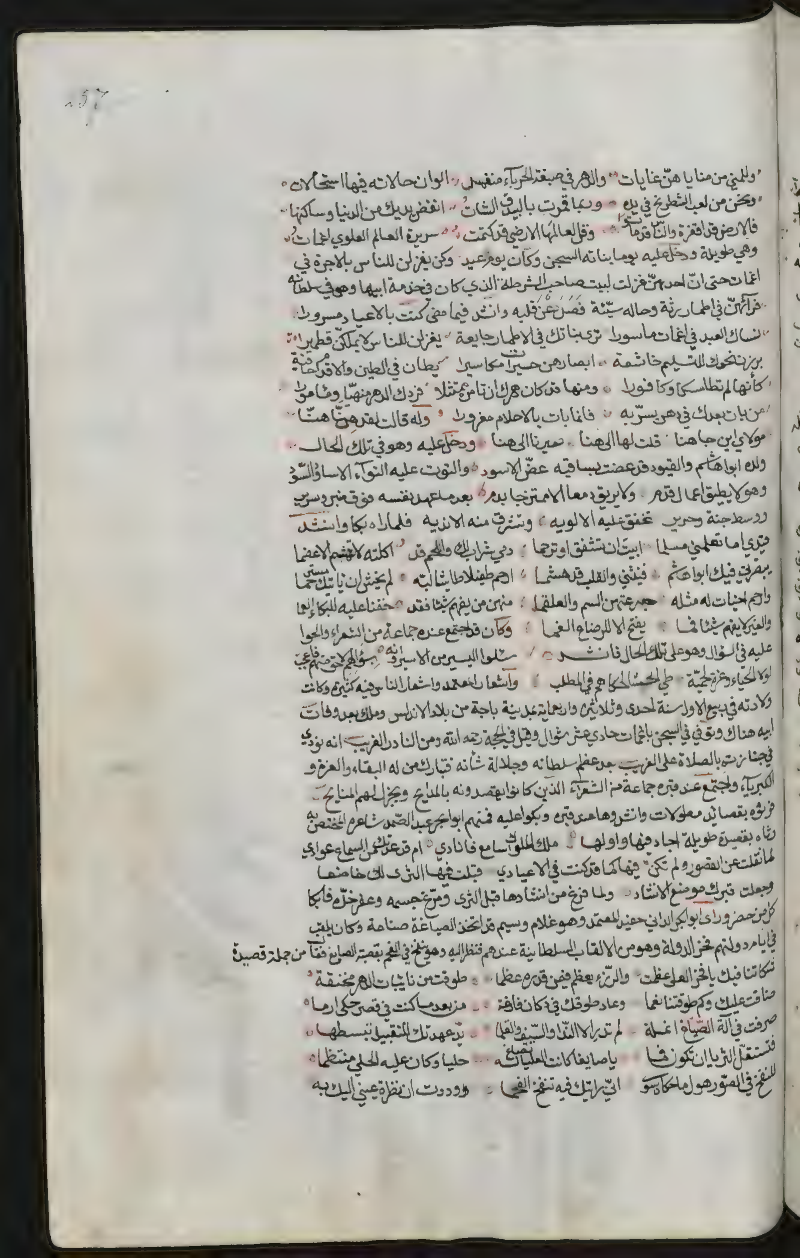 وللمني من منايا هن غايات والدهر في صبغة الحرباء منغمس الوان حالاته فيها استحالات
ونحن من لعب الشطرنج في يده وربما قمرت بالبيدق الشات انفض يديك من الدنيا وساكنها
فالارض قد اقفرت والناس قد ماتوا وقل لعالمها الارضي قد كتمت سريرة العالم العلوي اغمات
وهي طويلة ودخل عليه يوما بناته السجن وكان يوم عيد وكن يغزلن للناس بالاجرة في
اغمات حتى ان احداهن غزلت لبيت صاحب الشرطة الذي كان في خدمة ابيها وهو في سلطانه
فراهن في اطمار رثة وحاله سيئة فصدعن قلبه وانشد فيما مضى كنت بالاعياد مسرورا
فساك العيد في اغمات ماسورا ترى بناتك في الاطمار جايعة يغزلن للناس لا يملكن قطميرا
برزن نحوك للتسليم خاشعة ابصارهن حسيرات مكاسيرا يطان في الطين والاقدام حافية
كأنها لم تطأ مسكا وكافورا ومنها قد كان دهرك ان تامره ممتثلا فردك الدهر منهيا ومامورا
من بات بعدك في دهر يسر به فانما بات بالاحلام مغرورا وله قالت لقد هنا هنا
مولاي اين جاهنا قلت لها الى هنا صيرنا الى هنا ودخل عليه وهو في تلك الحال
ولده ابو هاشم والقيود قد عضت بساقيه عض الاسود والتوت عليه التواء الاساود السود
وهو لا يطيق اعمال قدم ولا يريق دمعا الا ممتزجا بدم بعد ما عهد نفسه فوق منبر وسرير
ووسط جنة وحرير تخفق عليه الالوية وتشرق منه الاندية فلما راه بكا وانشد
قيدي اما تعلمني مسلما ابيت ان تشفق او ترحما دمي شراب لك واللحم قد اكلته لا تهشم الاعظما
يبصرني فيك ابو هاشم فينثني والقلب قد هشما ارحم طفيلا طايشا لبه لم يخش ان ياتيك مسترحما
وارحم اخيات له مثله جرعتهن السم والعلقما منهن من يفهم شيئا فقد خفنا عليه للبكاء العما
والغير لا يفهم شيئا فما يفتح الا للرضاع الفما وكان قد اجتمع عنده جماعة من الشعراء والحوا
عليه في السؤال وهو على تلك الحال فانشد سئلوا اليسير من الاسير وانه بسؤالهم لاحق منهم فاعجب
لولا الحياء وعزة لخمية طي الحشا لحكاهم في المطلب واشعار المعتمد واشعار الناس فيه كثيرة وكانت
ولادته في ربيع الاول سنة احدى وثلاثين واربعماية بمدينة باجة من بلاد الاندلس وملك بعد وفات
ابيه هناك وتوفي في السجن باغمات حادي عشر شوال وقيل في الحجة رحمه الله ومن النادر الغريب انه نودي
في جنازته بالصلاة على الغريب بعد عظم سلطانه وجلالة شانه فتبارك من له البقاء والعزة و
الكبرياء واجتمع عند قبره جماعة من الشعراء الذين كانوا يقصدونه بالمدايح ويجزل لهم المنايح
فرثوه بقصائد مطولات وانشدوها عند قبره وبكوا عليه فمنهم ابو بحر عبد الصمد شاعره المختص به
رثاه بقصيدة طويلة اجاد فيها واولها ملك الملوك اسامع فانادي ام قد عدتك عن السماع عوادي
لما نقلت عن القصور ولم تكن فيها كما قد كنت في الاعيادي قبلت فيها الثرى لك خاضعا
وجعلت قبرك موضع الانشاد ولما فرغ من انشادها قبل الثرى ومرغ جسمه وعفر خده فابكا
كل من حضر وراى ابو بكر الداني حفيد المعتمد وهو غلام وسيم قد اتخذ الصياغة صناعة وكان يلقب
في ايام دولتهم فخر الدولة وهو من الالقاب السلطانية عندهم فنظر اليه وهو ينفخ في الفحم بقصبة الصايغ فقال من جملة قصيدة
شكاتنا فيك يا فخر العلى عظمت والرزء يعظم فيمن قدره عظما طوقت من نايبات الدهر مخنقة
ضاقت عليك وكم طوقتنا نعما وعاد طوقك في دكان قارعة من بعد ما كنت في قصر حكى ارما
صرفت في آلة الصياغ انملة لم تدر الا الندا والسيف والقلما يد عهدتك للتقبيل تبسطها
فتستقل الثريا ان تكون فما يا صايغا كانت العليا تصاغ له حليا وكان عليه الحلي منتظما
للنفخ في الصور هول ما حكاه سوى اني رايتك فيه تنفخ الفحما وددت اذ نظرة عيني اليك به